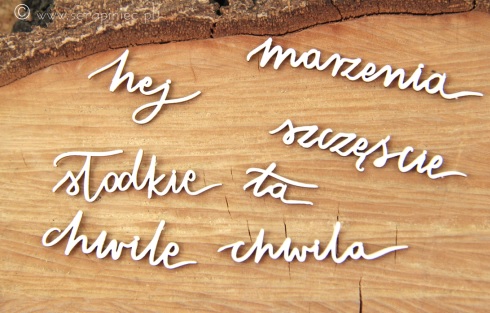 © www.scrapiniec.pl
hej
marzenia
szczęście
słodkie
ta
chwile
chwila